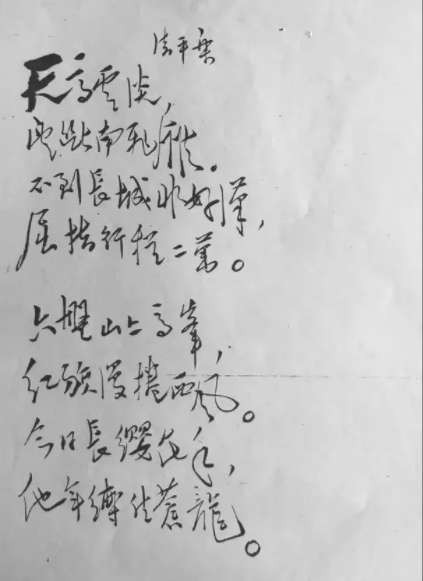 清平樂
天高雲淡，
望斷南飛雁。
不到長城非好漢，
屈指行程二萬。
六盤山上高峯，
紅旗漫捲西風。
今日長纓在手，
他年縛住蒼龍。